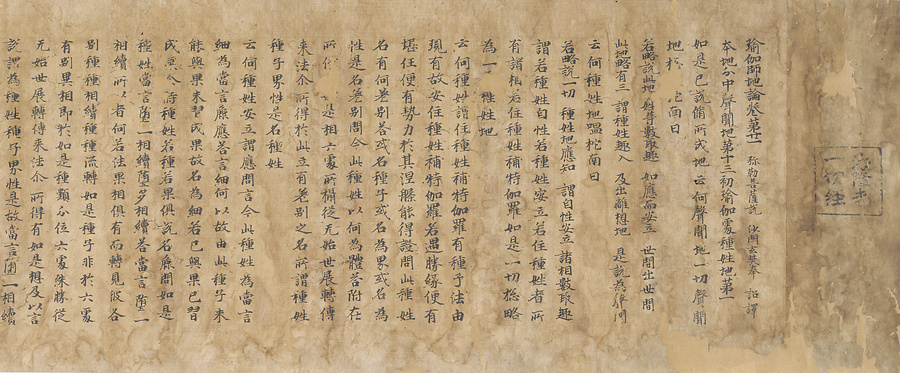 瑜伽師地論卷第廿一 弥勒菩薩說 沙門玄奘奉 詔譯
本地分中聲聞地第十三初瑜伽處種姓地第一
如是已說脩所成地云何聲聞地一切聲聞
地 南曰
若略說此地 姓等數取趣 如應而安立 世間出世間
此地略有三 謂種姓趣入 及出離想地 是說為聲聞
云何種姓地嗢柁南曰
若略說一切 種姓地應知 謂自性安立 諸相數取趣
謂若種姓自性若種姓安立若住種姓者所
有諸相若住種姓補特伽羅如是一切揔略
為一 種姓地
云何種姓謂住種姓補特伽羅有種子法由
現有故安住種姓補特伽羅若遇勝緣便有
堪任便有勢力於其涅槃能得能證問此種姓
名有何差別答或名種子或名為界或名為
性是名差別問今此種姓以何為體答附在
所 是相六處所攝從无始世展轉傳
来法尒所得於此立有差別之名所謂種姓
種子界性是名種姓
云何種姓安立謂應問言今此種姓為當言
細為當言麁應答言細何以故由此種子未
能與果未習成果故名為細若已與果已習
成果尒時種姓若種若果俱說名麁問如是
種姓當言墮一相續墮多相續答當言墮一
相續所以者何若法異相俱有而轉見彼各
別種種相續種種流轉如是種子非於六處
有別異相即於如是種類分位六處殊勝從
无始世展轉傳来法尒所得有如是想及以言
說謂為種姓種子界性是故當言墮一相續